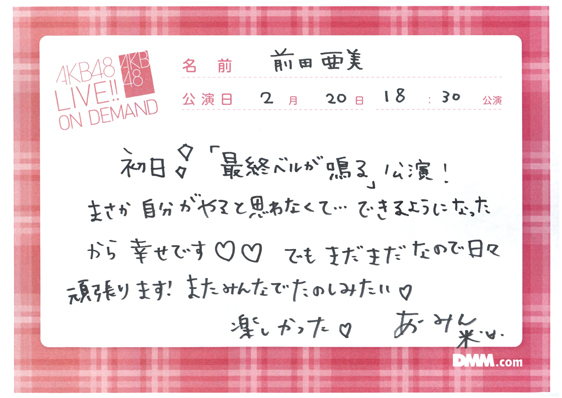 AKB48
LIVE!!
ON DEMAND
AKB
48
名前 前田亜美
公演日 2月20日 18:30公演
初日!「最終ベルが鳴る」公演!
まさか自分がやると思わなくて…できるようになった
から幸せです♡♡ でもまだまだなので日々
頑張ります!またみんなでたのしみたい♡
楽しかった♡ あーみん
DMM.com